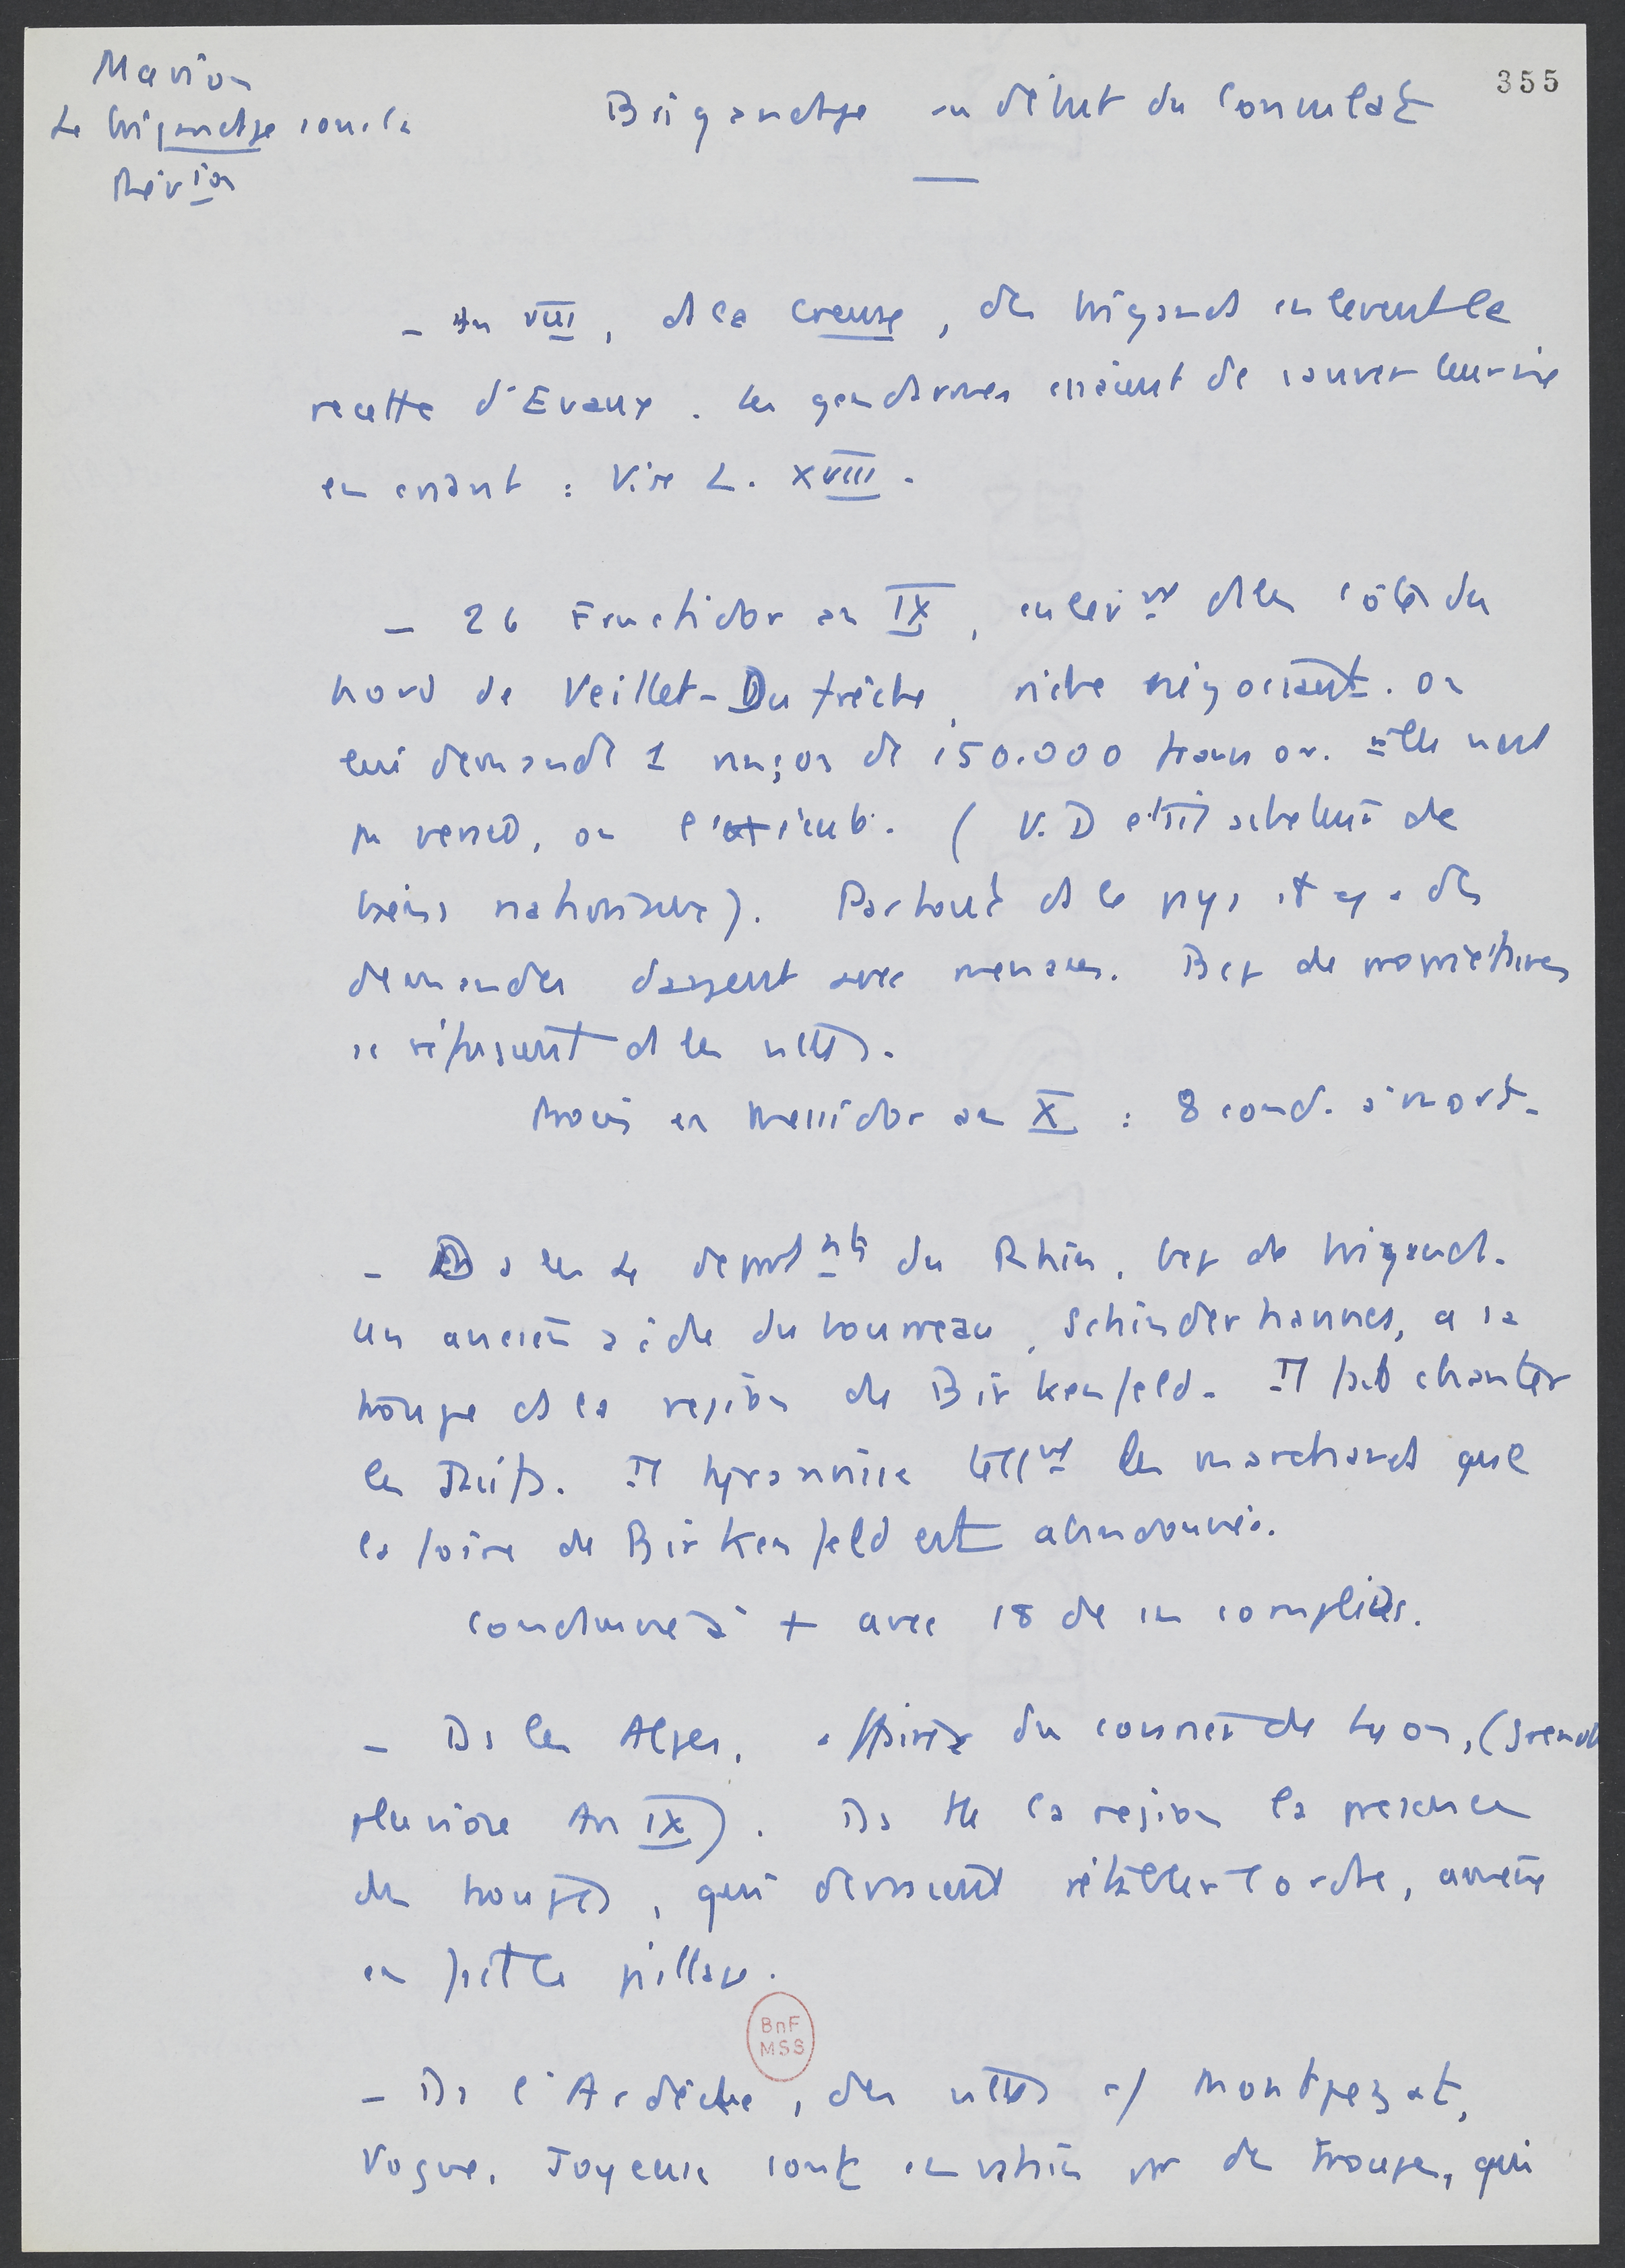 355
Marion
Le brigandage sous la
Rév ion
Brigandage au début du Consulat
- An VIII, ds la Creuse, des brigands enlevent la
recette d'Evaux. Les gendarmes essaient de sauver leur vie
en criant : Vive L. XVIII.
- 26 Fructidor an IX, enlèv nt ds les côtes du
nord de Veillet-Dufrêche, riche négociant. On
lui demande 1 rançon de 150.000 francs or.
pas versé, on (V. D était acheteur de
biens nationaux). Partout ds le pays il y a des
demandes dargent avec menaces. Bcp de propriétaires
se réfusent ds les villes.
Procès en Messidor an X : 8 cond. à mort.
- Ds les 4 departs nts du Rhin, bcp de brigands.
Un ancien aide du bourreau, Schinderhannes, a sa
troupe ds la region de Birkenfeld. Il fait chanter
les Juifs. Il tyrannise tellt les marchands que
la foire de Birkenfeld est abandonnée.
Condamné à + avec 18 de ses complices.
- Ds les Alpes, affaire du courrier de Lyon, (
pluviose An IX). Ds tte la region la présence
des troupes, qui devraient rétablir l ordre, arrière
en fait le pillage.
BnF
MSS
- Ds l'Ardèche, des villes c/ Montpezat,
Vogue, Joyeuse sont envahies par des troupes, qui